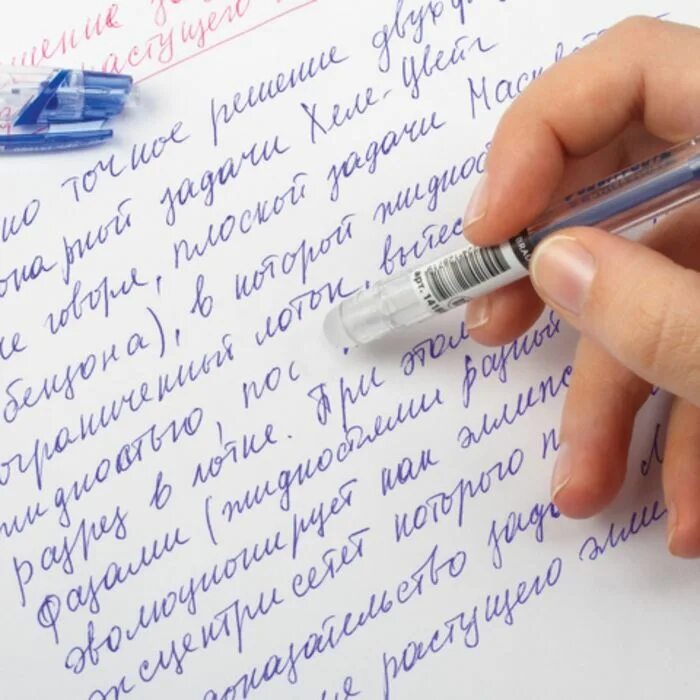 ешение за
растущего
но точное решение двух
онарной задачи Хеле-Цвейг
е говоря, плоской задачи Маск
бензона), в которой жиднос
ограниченный лоток, вытес
жидкостью, пос
разрез в лотке. При этом
фазами (жидкостями разный
эволюционирует как эллипс
эксцентрисетет которого п
доказательство зада
ие растущего элли
BRAU
арт. 141